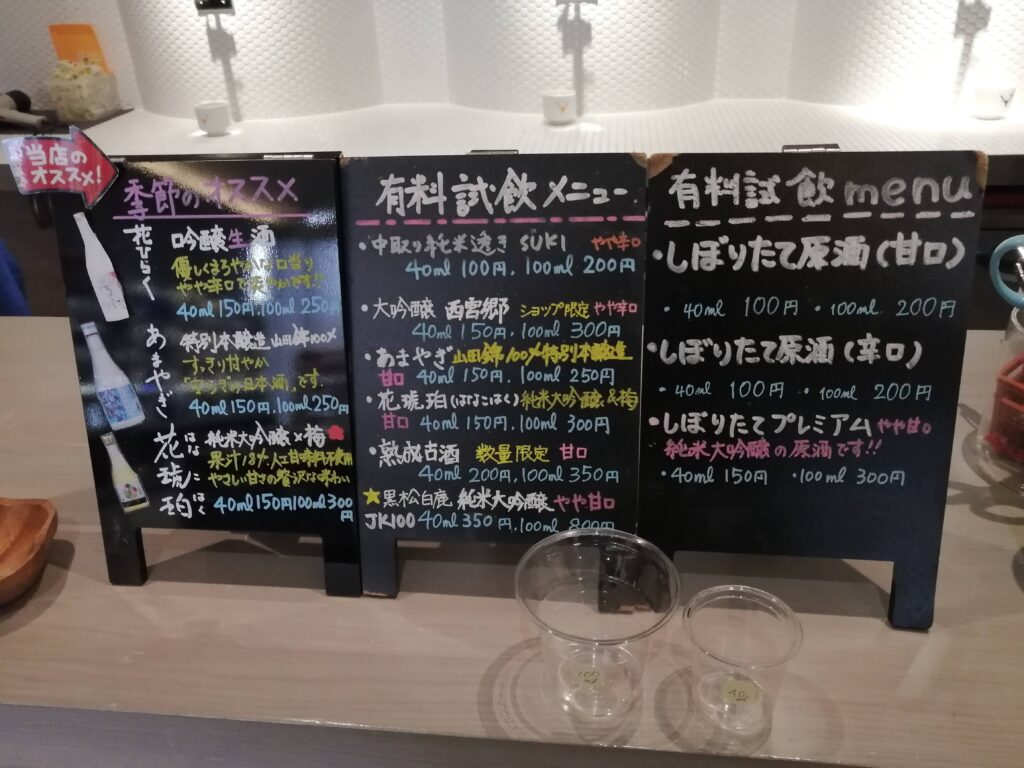 当店の
オススメ!
季節のオススメ
花ひらく
吟醸生酒
優しくまろやかな口当り
やや辛口で
40ml 150円. 100ml 250
あまやぎ
特別本醸造 山田錦100%
すっきり甘やか
日本酒」です.
40ml 150円. 100ml 250円
花琥珀
はなこはく
純米大吟醸×梅
果汁 人工甘味料不使用
やさしい甘さの贅沢な味わい
40ml 150円 100ml 300円
有料試飲メニュー
・中取り純米透き SUKI やや辛口
40ml 100円. 100ml 200円
・大吟醸 西宮郷 ショップ限定 やや辛口
40ml 150円. 100ml 300円
・あまやぎ 山田錦100%特別本醸造
甘口 40ml 150円. 100ml 250円
・花琥珀(はなこはく) 純米大吟醸&梅
甘口 40ml 150円. 100ml 300円
・熟成古酒 数量限定 甘口
40ml 200円. 100ml 350円
★黒松白鹿 純米大吟醸 やや甘口
JK100 40ml 350円. 100ml 800円
有料試飲menu
・しぼりたて原酒(甘口)
・40ml 100円 ・100ml 200円
・しぼりたて原酒(辛口)
・40ml 100円 ・100ml 200円
・しぼりたてプレミアム やや甘口
純米大吟醸の原酒です!!
・40ml 150円 ・100ml 300円